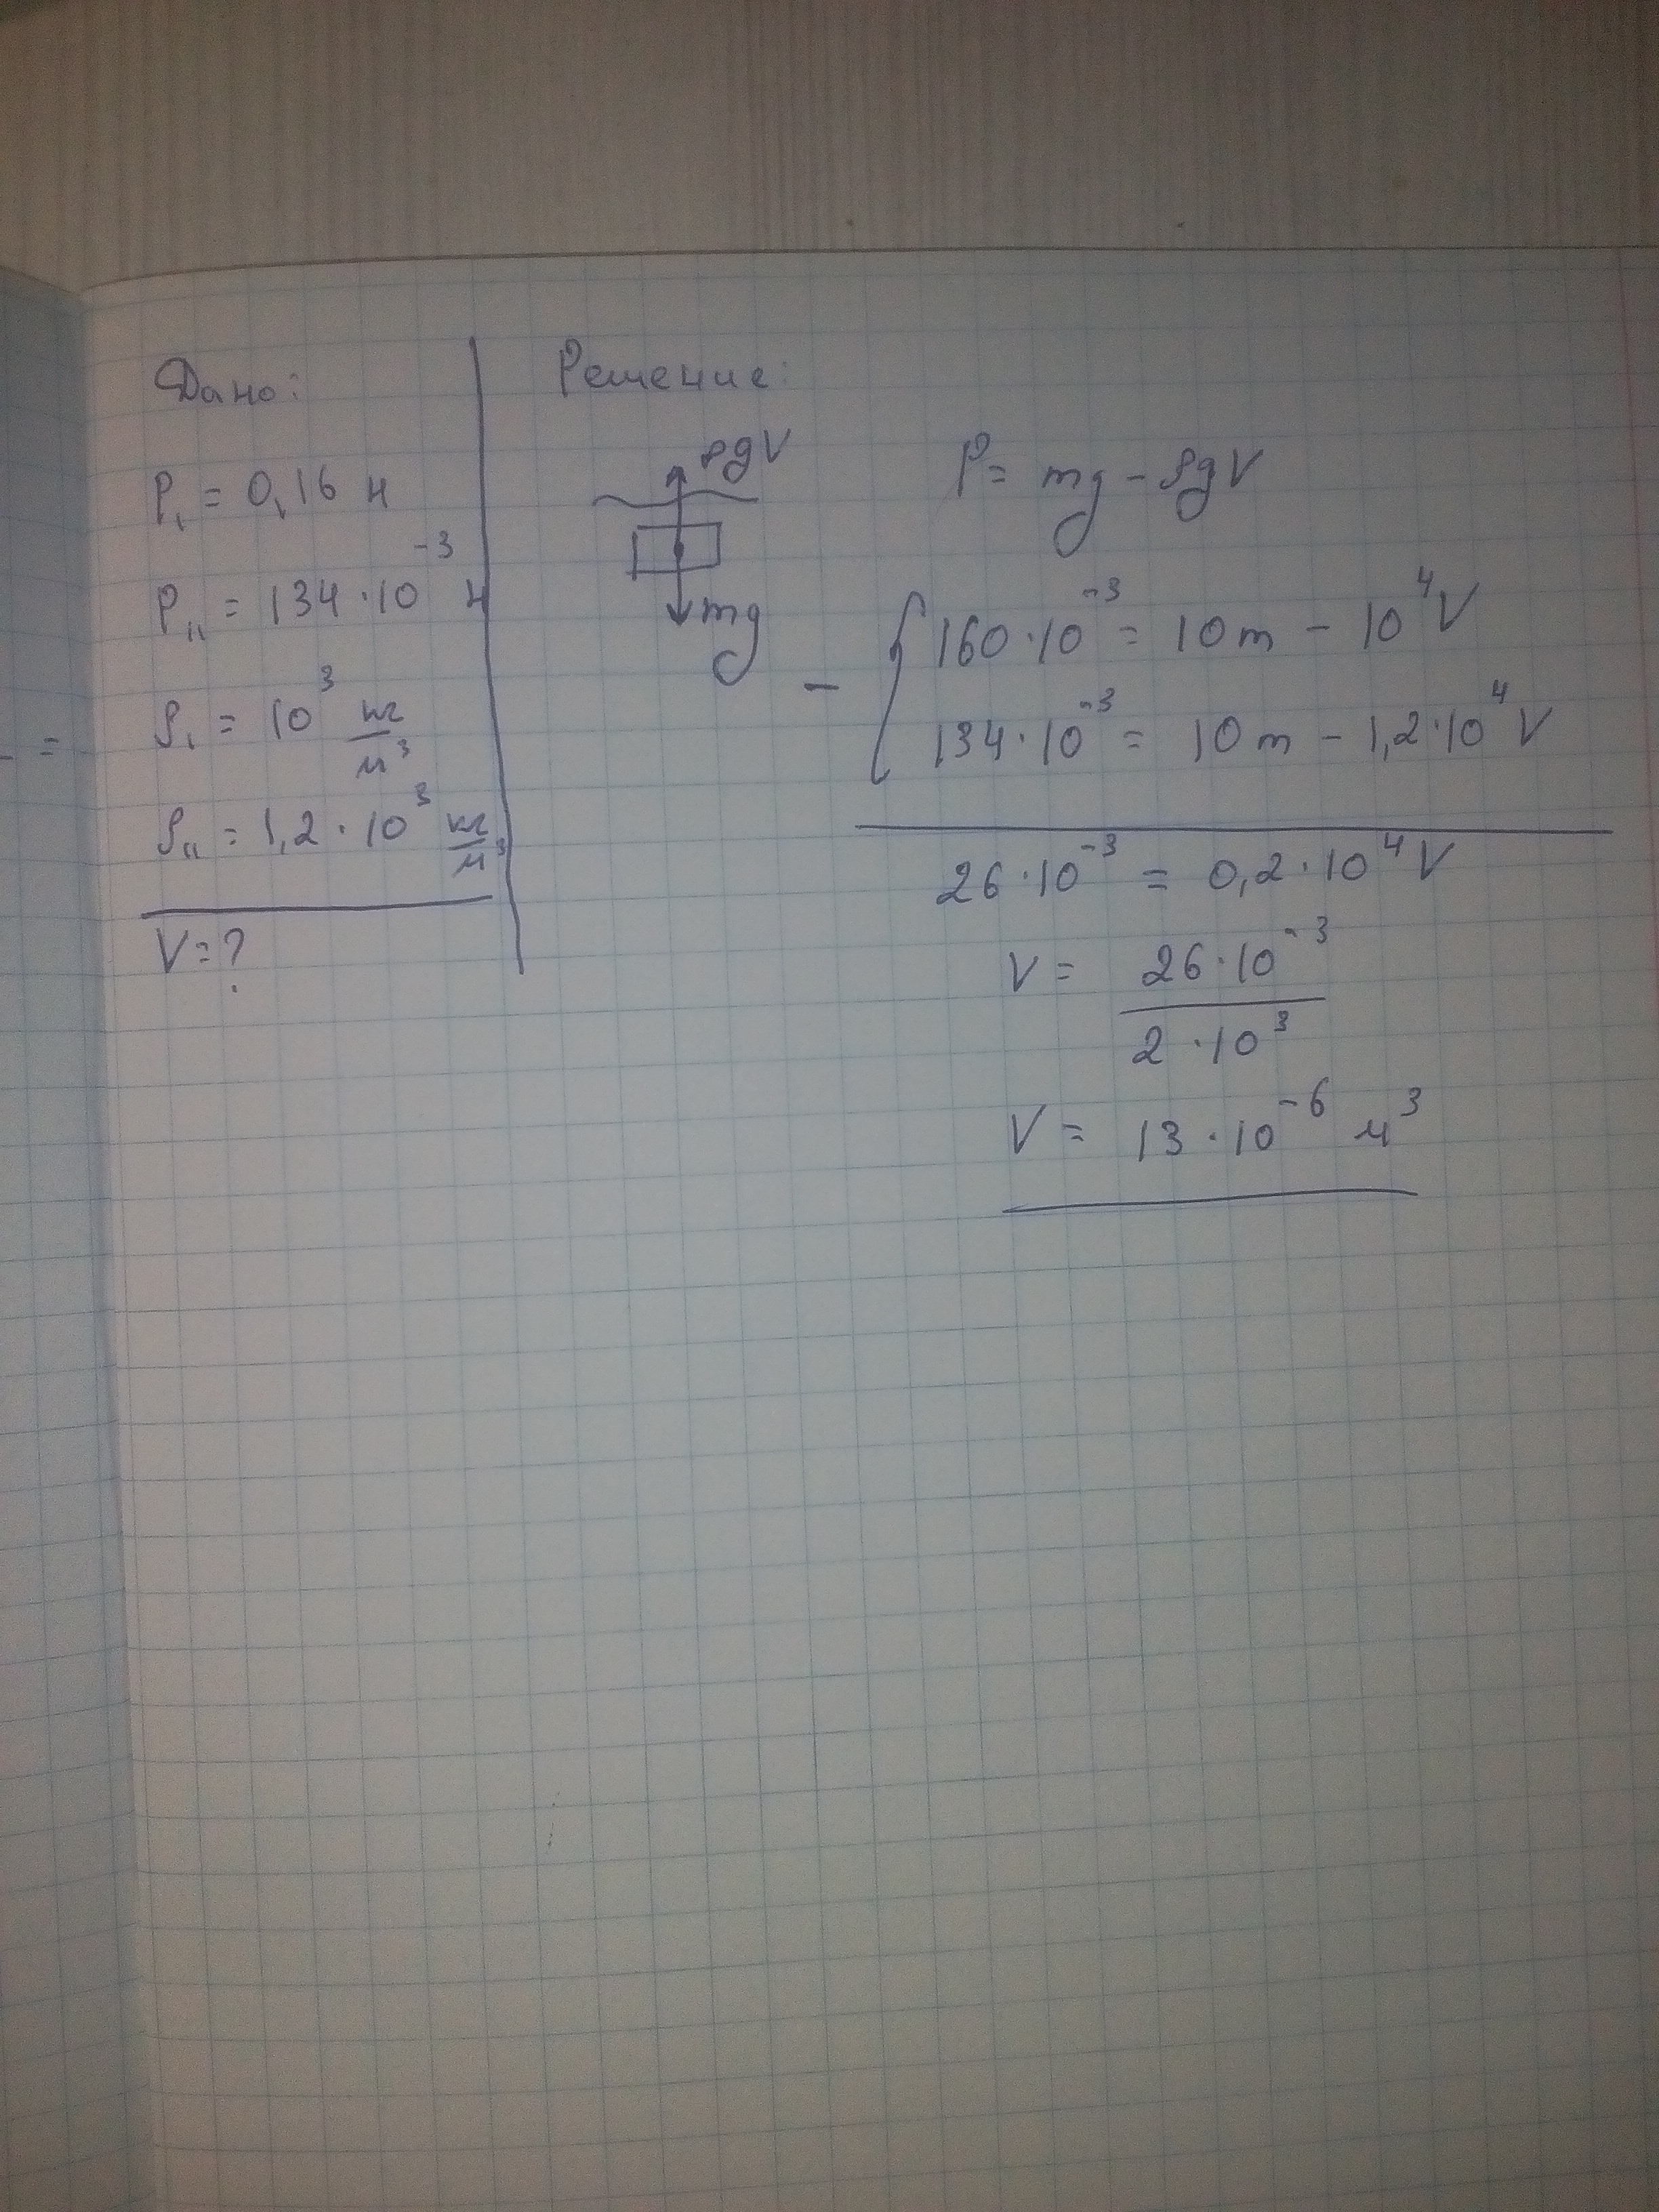 Дано:
P₁ = 0,16 н
P₁₁ = 134·10⁻³ н
ρ₁ = 10³ кг/м³
ρ₁₁ = 1,2·10³ кг/м³
V=?
Решение:
ρgV
mg
P= mg - ρgV
160·10⁻³ = 10m - 10⁴V
134·10⁻³ = 10m - 1,2·10⁴V
26·10⁻³ = 0,2·10⁴V
V = 26·10⁻³ / 2·10³
V = 13·10⁻⁶ м³